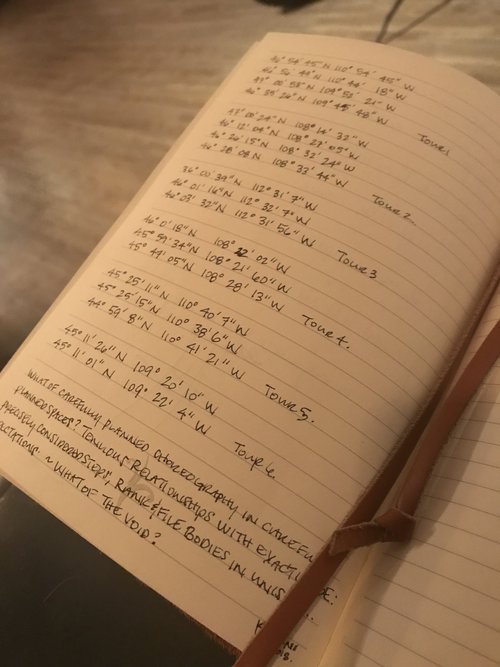 46° 54' 45" N 110° 54' 45" W
46° 56' 44" N 110° 44' 18" W
47° 00' 53" N 109° 52' 21" W
46° 39' 24" N 109° 45' 48" W
Tour 1
47° 00' 24" N 108° 14' 32" W
46° 12' 04" N 108° 27' 05" W
46° 26' 15" N 108° 32' 24" W
46° 28' 08 N 108° 33' 44" W
Tour 2
36° 00' 39" N 112° 31' 7" W
46° 01' 16" N 112° 32' 7" W
46° 03' 32" N 112° 31' 56" W
Tour 3
46° 0' 18" N 108° 22' 02" W
45° 59' 34" N 108° 21' 60" W
45° 49' 05" N 108° 28' 13" W
Tour 4.
45° 25' 11" N 110° 40' 7" W
45° 25' 15" N 110° 38' 6" W
44° 59' 8" N 110° 41' 21" W
Tour 5.
45° 11' 26" N 109° 20' 10" W
45° 11' 01" N 109° 22' 4" W
Tour 6.
WHAT OF CAREFULLY PLANNED CHOREOGRAPHY IN CAREFUL
PLANNED SPACES? TENUOUS RELATIONSHIPS WITH
PRECISELY CONSIDERED STEPS, RANK & FILE BODIES IN
~ WHAT OF THE VOID?